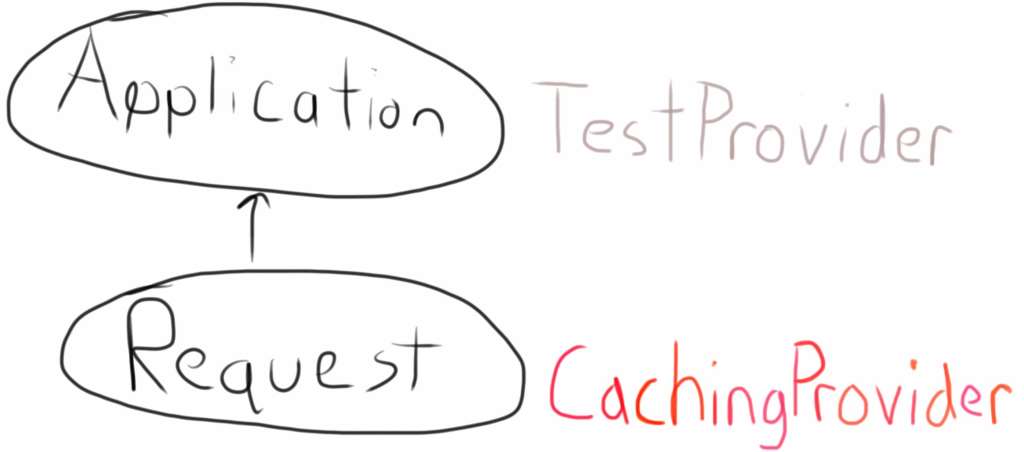 Application TestProvider
Request CachingProvider